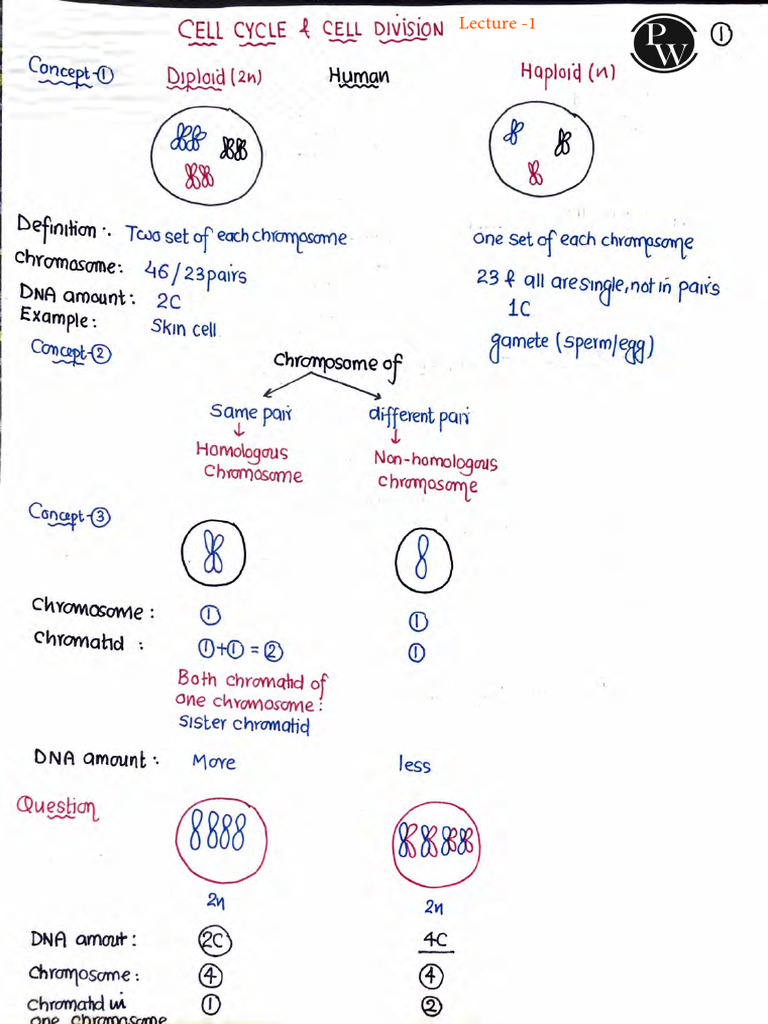 CELL CYCLE & CELL DIVISION Lecture -1
PW
1
Concept-1 Diploid (2n) Human Haploid (n)
Definition:. Two set of each chromosome one set of each chromosome
Chromosome: 46/23 pairs 23 & all are single, not in pairs
DNA amount: 2C 1C
Example: Skin cell gamete (sperm/egg)
Concept-2
Chromosome of
Same pair different pair
Homologous Chromosome Non-homologous chromosome
Concept-3
Chromosome: 1 1
Chromatid : 1+1=2 1
Both chromatid of
one chromosome:
Sister chromatid
DNA amount: More less
Question
2n 2n
DNA amout: 2C 4C
Chromosome: 4 4
Chromatid in 1 2
one chromosome